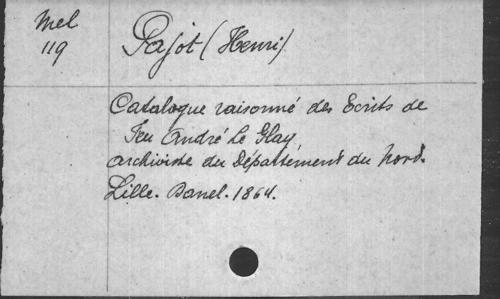 Mel
119
Pajot (Henri)
Catalogue raisonné des Ecrits de
Feu André Le Glay,
archiviste du Département du Nord.
Lille. Danel. 1864.